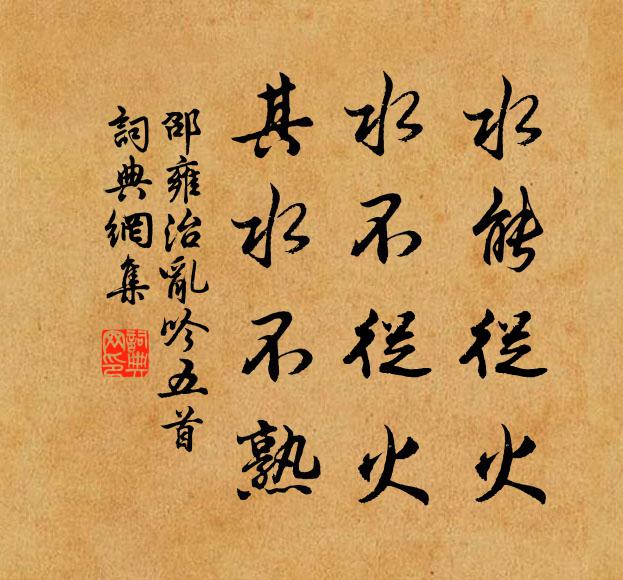 水能從火
水不從火
其水不熟
邵雍治亂吟五首
詞典網集
詞典
网印